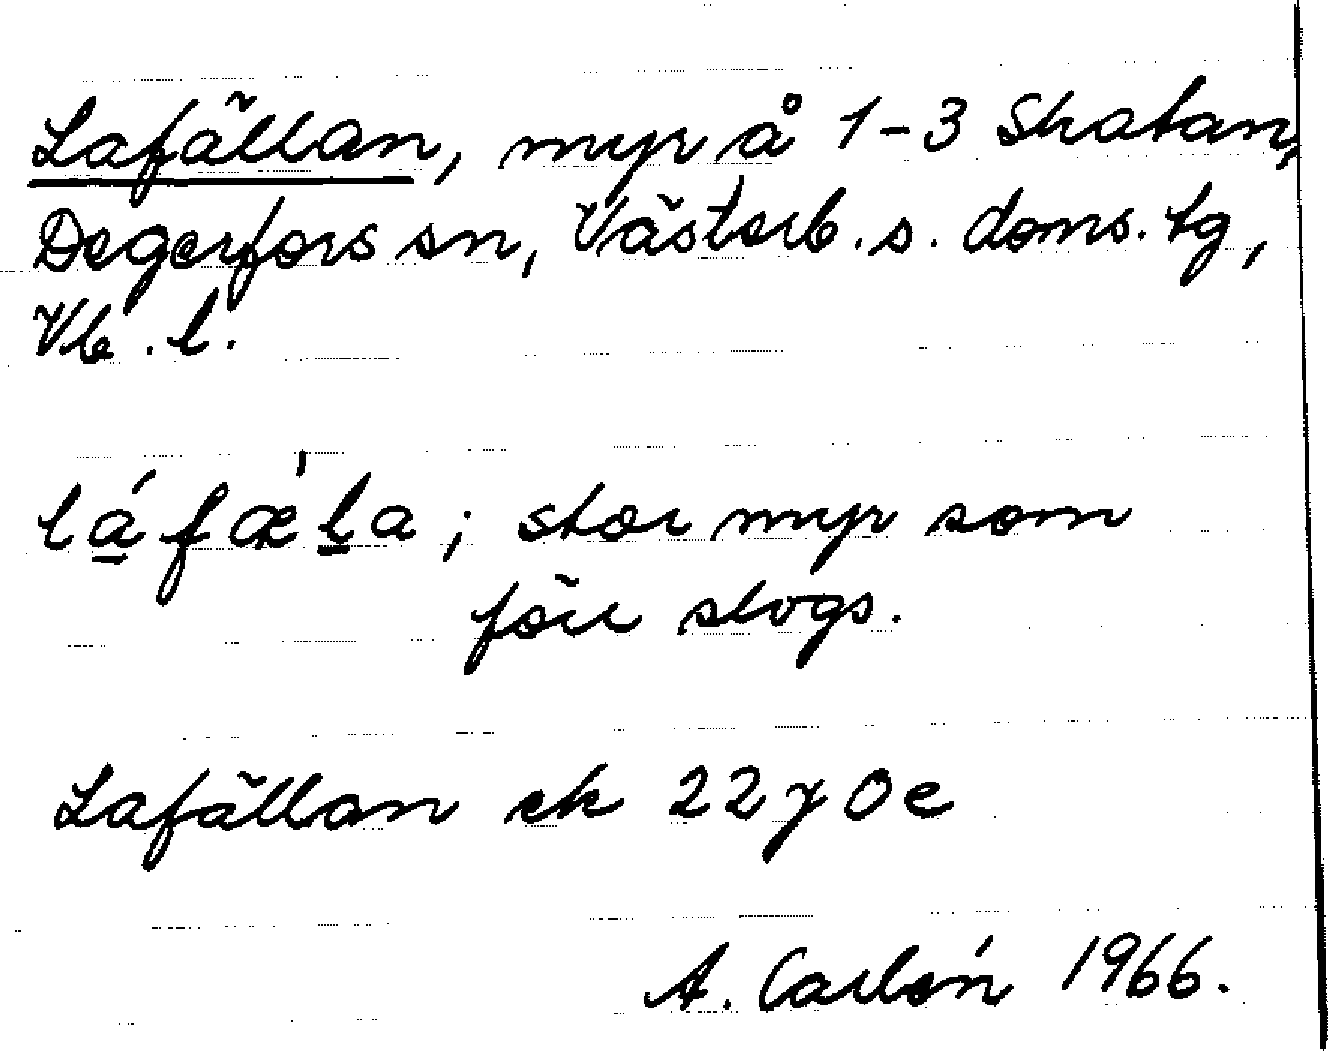 Lafällan, myr å 1-3 Skatan,
Degerfors sn, Västerb. s. doms. tg,
Vb. l.
lá̱fæ̍ḻa; stor myr som
förr slogs.
Lafällan ek 22 J 0 e
A. Carlén 1966.